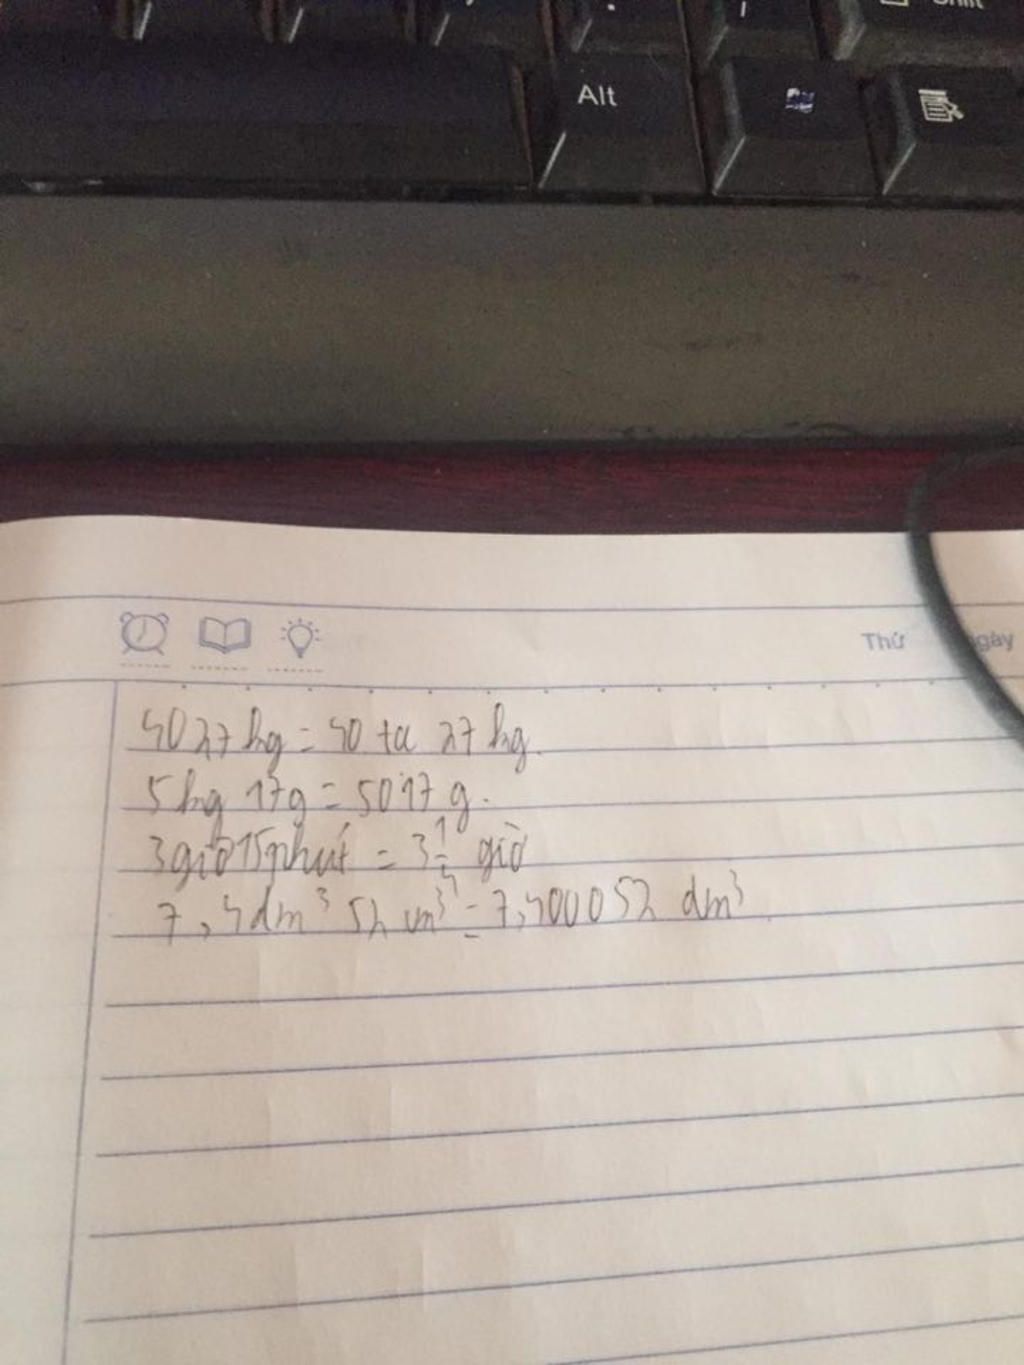 Shift
Alt
Thứ
gày
4027 kg = 40 tạ 27 kg.
5 kg 17g = 5017 g.
3 giờ 15 phút = 3 1/4 giờ
7,4dm³ 52 cm³ = 7,400052 dm³